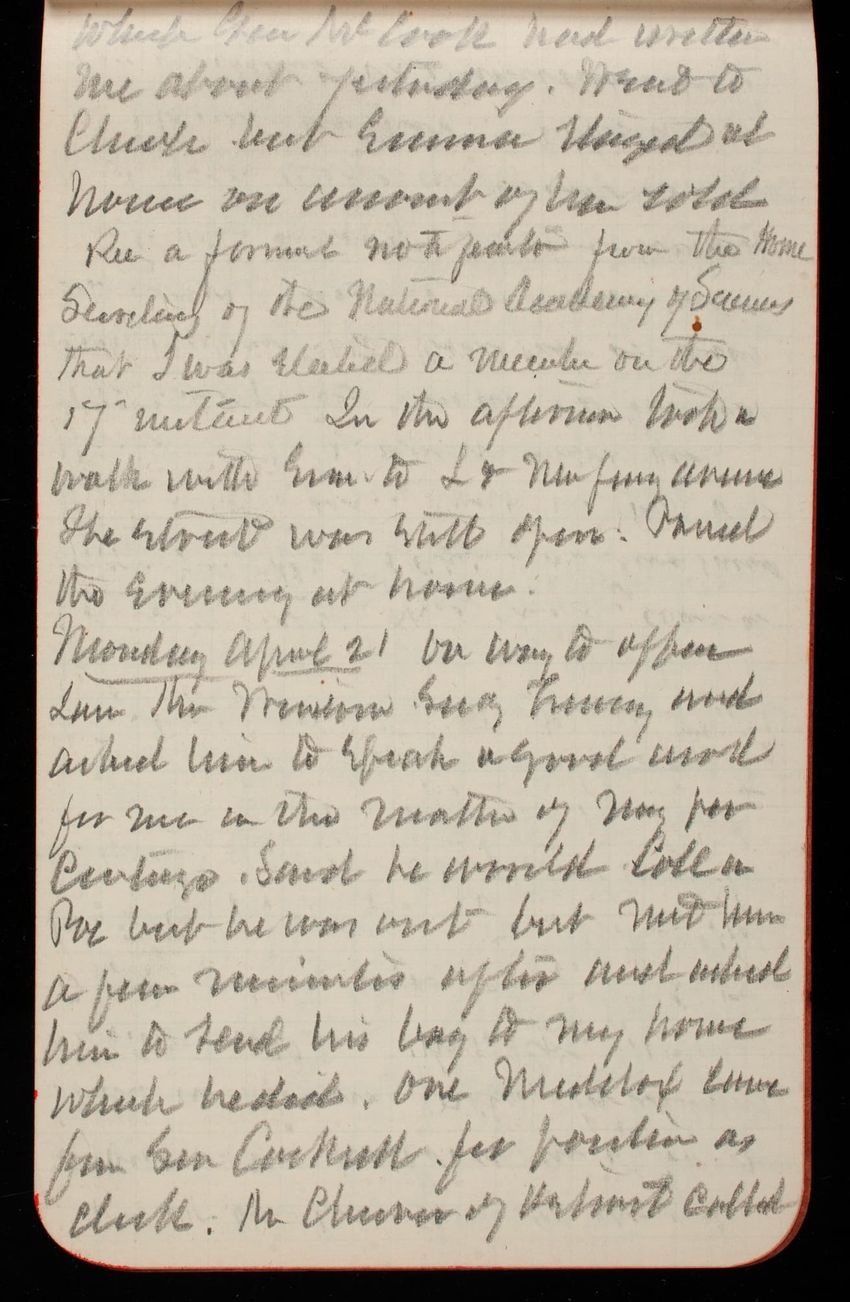 which Gen McCook had written
me about yesterday. Went to
Church but Emma stayed at
home on account of her cold
Rec a formal notification from the Home
Secretary of the National Academy of Sciences
that I was elected a member on the
17" instant In the afternoon took a
walk with Em to L &
The street was still open. Passed
the evening at home.
Monday April 21 On way to office
saw the Secy Tracy and
asked him to speak a good word
for me in the matter of my
. Said he would Call on
but he was out but met him
a few minutes after and asked
him to send his bag to my home
which he did. One came
from Sen Cockrell for position as
clerk. Mr of called